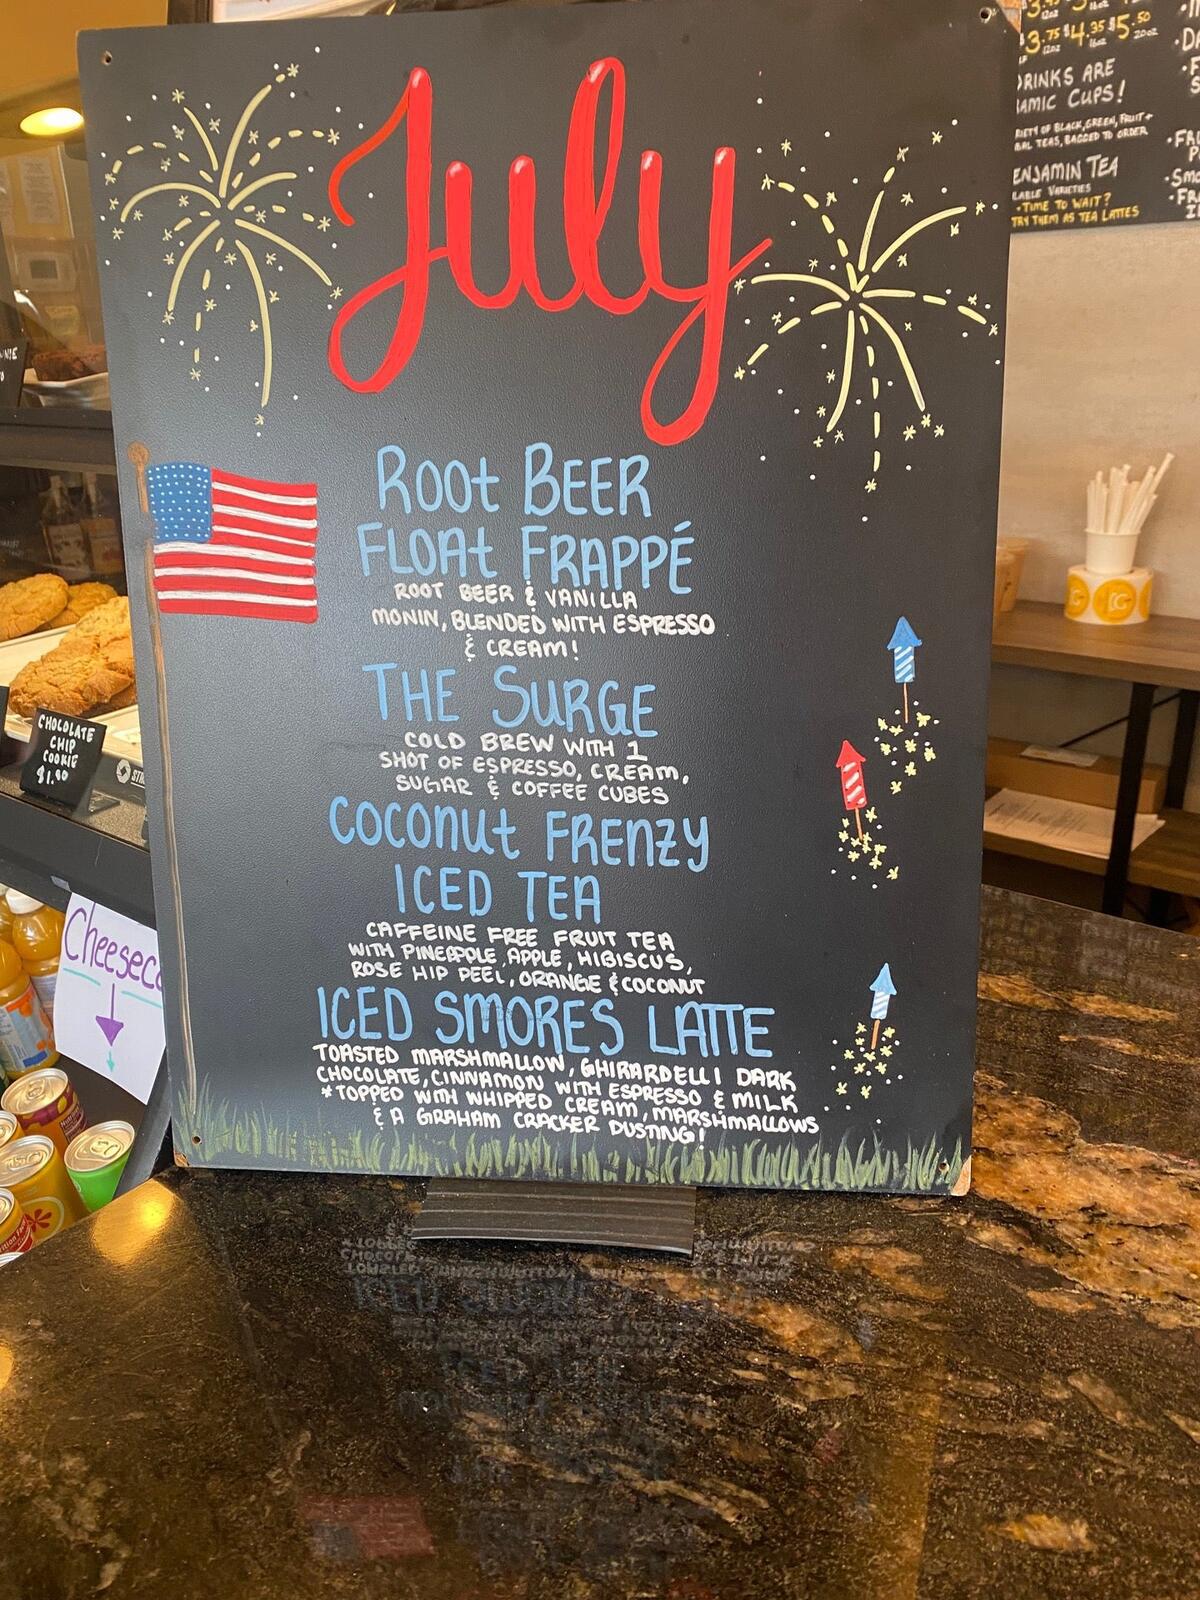 July
ROOt BEER
FLOAt FRAPPÉ
ROOT BEER & VANILLA
MONIN, BLENDED WITH ESPRESSO
& CREAM!
THE SURGE
COLD BREW WITH 1
SHOT OF ESPRESSO, CREAM,
SUGAR & COFFEE CUBES
COCONUt FRENZY
ICED TEA
CAFFEINE FREE FRUIT TEA
WITH PINEAPPLE, APPLE, HIBISCUS,
ROSE HIP PEEL, ORANGE & COCONUT
ICED SMORES LATTE
TOASTED MARSHMALLOW, GHIRARDELLI DARK
CHOCOLATE, CINNAMON WITH ESPRESSO & MILK
*TOPPED WITH WHIPPED CREAM, MARSHMALLOWS
& A GRAHAM CRACKER DUSTING!
CHOCOLATE
CHIP
COOKIE
$1.90
3.75 $4.35 $5.50
12oz 16oz 20oz
DRINKS ARE
CUPS!
OF BLACK, GREEN, FRUIT +
TEAS, BAGGED TO ORDER
TEA
VARIETIES
• TIME TO WAIT?
TRY THEM AS TEA LATTES